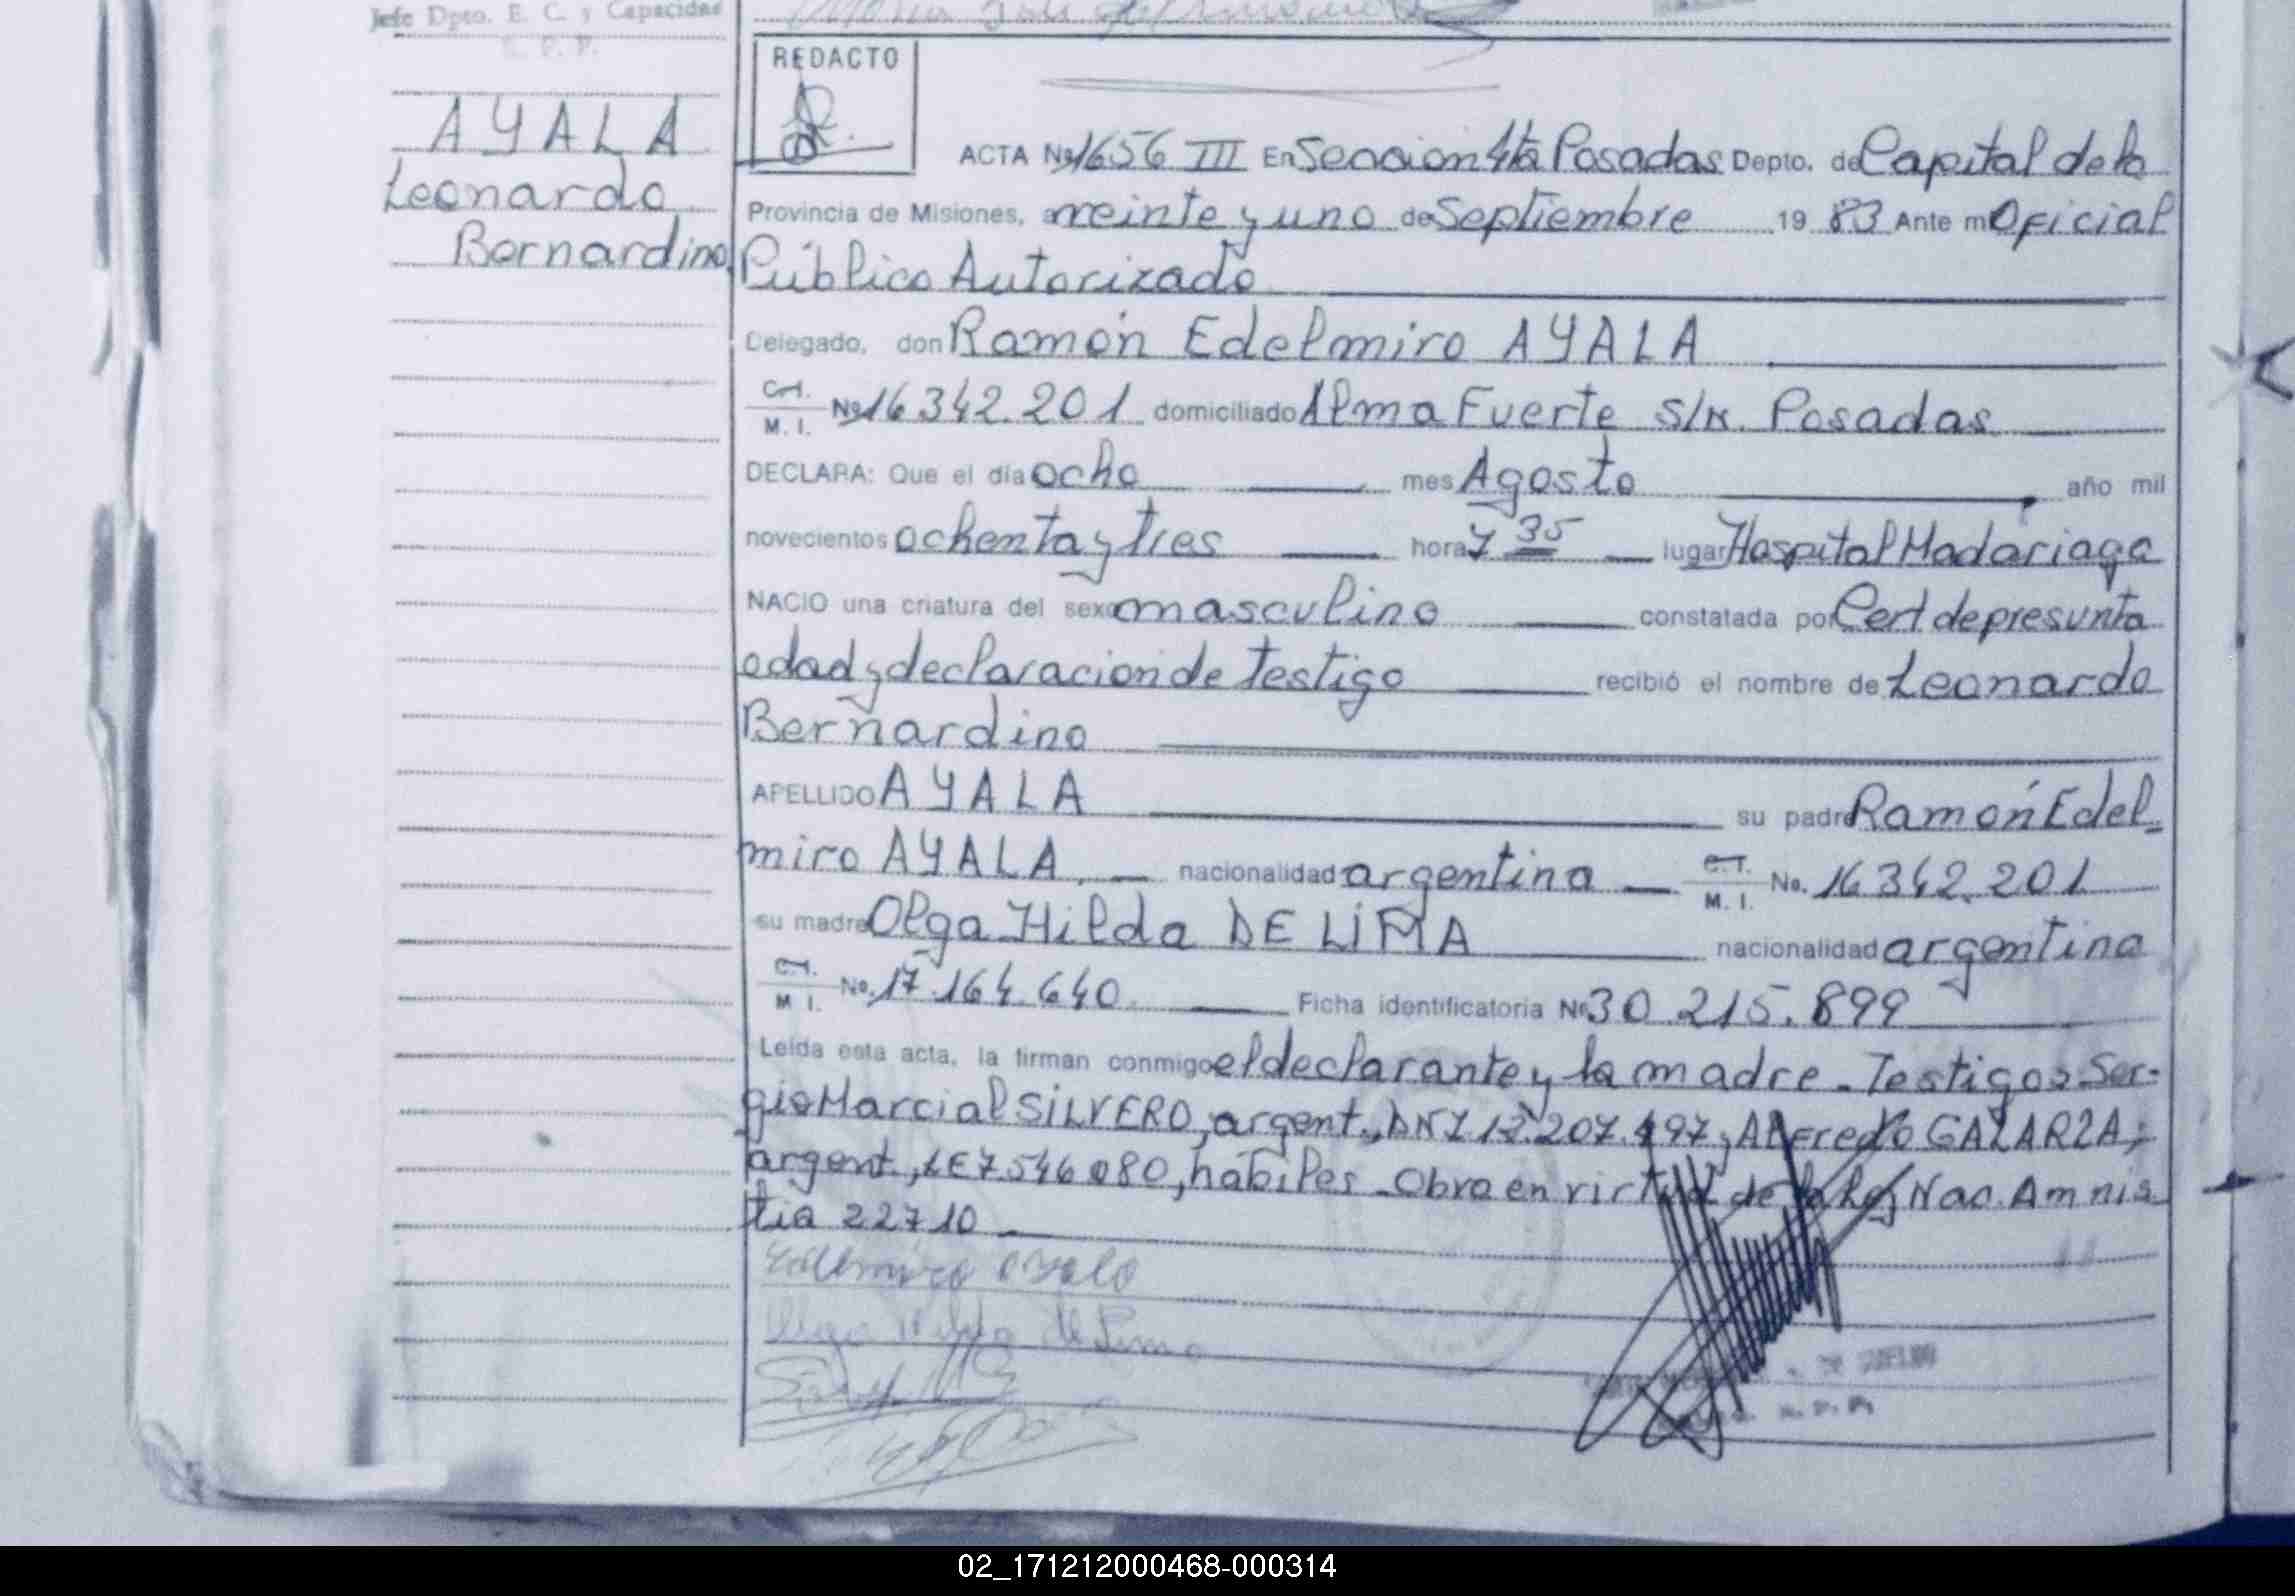 Jefe Dpto. E. C. y Capacidad
R. P. P.
REDACTO
AYALA
Leonardo
Bernardino
ACTA Nº 1656 III En Seccion 4ta Posadas Depto. de Capital de la
Provincia de Misiones, a veinte y uno de Septiembre 19 83 Ante mi Oficial
Público Autorizado
Delegado, don Ramón Edelmiro AYALA
C.I.
M. I. Nº 16 342.201 domiciliado Alma Fuerte S/N. Posadas
DECLARA: Que el día ocho mes Agosto año mil
novecientos ochenta y tres hora 7 35 lugar Hospital Madariaga
NACIO una criatura del sexo masculino constatada por Cert de presunta
edad y declaracion de Testigo recibió el nombre de Leonardo
Bernardino
APELLIDO AYALA su padre Ramón Edel-
miro AYALA. nacionalidad argentina C.I.
M. I. No. 16 342.201
su madre Olga Hilda DE LIMA nacionalidad argentina
C.I.
M. I. No. 17.164.640. Ficha identificatoria Nº 30.215.899
Leída esta acta, la firman conmigo el declarante y la madre. Testigos Ser-
gio Marcial SILVERO, argent., DNI 12.207.497, Alfredo GALARZA,
argent, LE 7.546.080, habiles. Obra en virtud de la Ley Nac. Amnis
tia 22710
Edelmiro Ayala
Olga Hilda de Lima
02_171212000468-000314